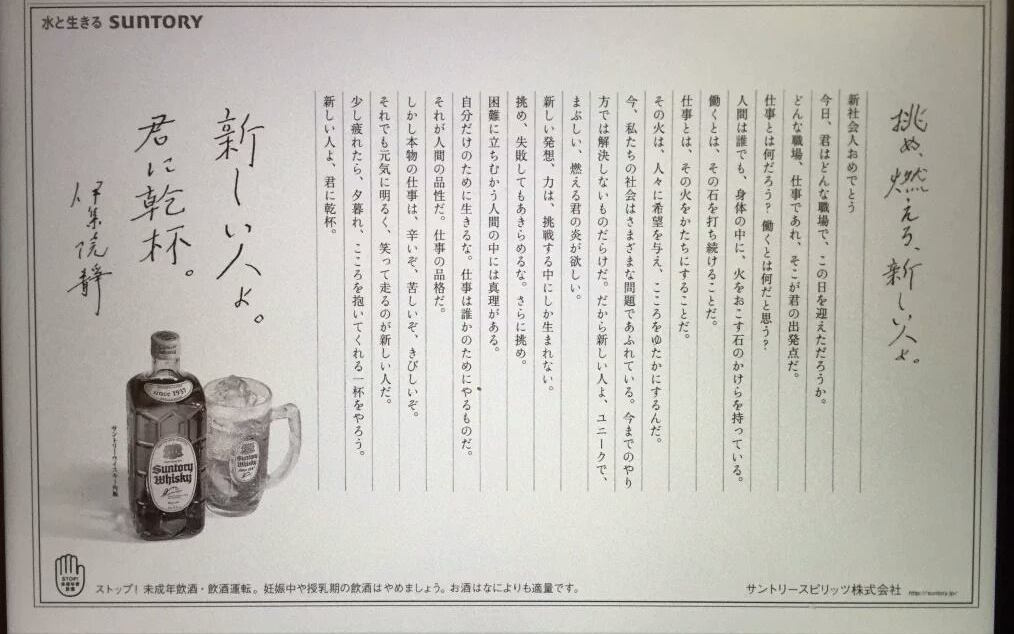 水と生きる SUNTORY
挑め、燃えろ、新しい人よ。
新社会人おめでとう
今日、君はどんな職場で、この日を迎えただろうか。
どんな職場、仕事であれ、そこが君の出発点だ。
仕事とは何だろう? 働くとは何だと思う?
人間は誰でも、身体の中に、火をおこす石のかけらを持っている。
働くとは、その石を打ち続けることだ。
仕事とは、その火をかたちにすることだ。
その火は、人々に希望を与え、こころをゆたかにするんだ。
今、私たちの社会はさまざまな問題であふれている。今までのやり
方では解決しないものだらけだ。だから新しい人よ、ユニークで、
まぶしい、燃える君の炎が欲しい。
新しい発想、力は、挑戦する中にしか生まれない。
挑め、失敗してもあきらめるな。さらに挑め。
困難に立ちむかう人間の中には真理がある。
自分だけのために生きるな。仕事は誰かのためにやるものだ。
それが人間の品性だ。仕事の品格だ。
しかし本物の仕事は、辛いぞ、苦しいぞ、きびしいぞ。
それでも元気に明るく、笑って走るのが新しい人だ。
少し疲れたら、夕暮れ、こころを抱いてくれる一杯をやろう。
新しい人よ、君に乾杯。
新しい人よ。
君に乾杯。
伊集院静
since 1937
Suntory
Whisky
Suntory
Whisky
サントリーウイスキー角瓶
STOP!
ストップ! 未成年飲酒・飲酒運転。妊娠中や授乳期の飲酒はやめましょう。お酒はなによりも適量です。
サントリースピリッツ株式会社 http://suntory.jp/